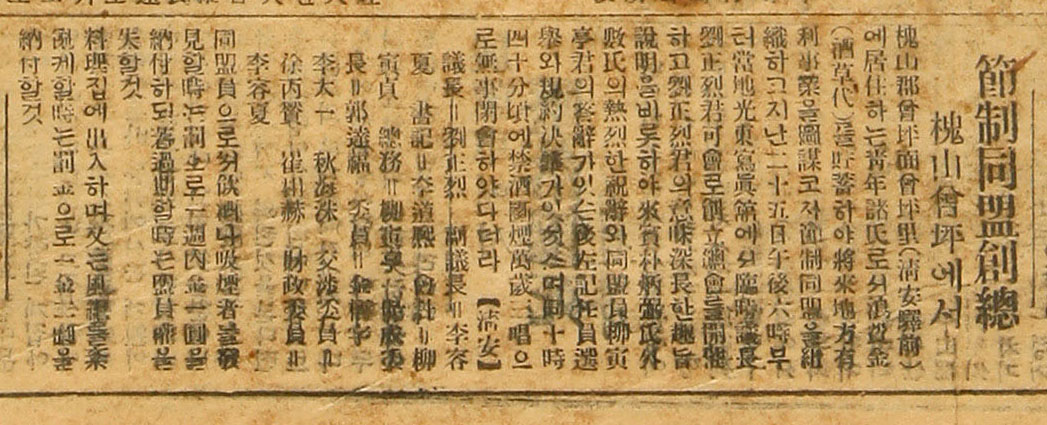 節制同盟創總
槐山曾坪에서
槐山郡曾坪面曾坪里(淸安驛前)
에居住하는靑年諸氏로서浪費金
(酒草代)을貯蓄하야將來地方有
利事業을圖謀코자節制同盟을組
織하고지난二十五日午後六時부
터當地光東寫眞館에서臨時議長
劉正烈君司會로創立總會를開催
하고劉正烈君의意味深長한趣旨
說明을비롯하야來賓朴炳弼氏外
數氏의熱烈한祝辭와同盟員柳寅
亭君의答辭가잇슨後左記任員選
擧와規約決議가잇섯스며同十時
四十分頃에禁酒斷煙萬歲三唱으
로無事閉會하얏다더라 【淸安】
議長＝劉正烈 副議長＝李容
夏 書記＝李道熙 會計＝柳
寅貞 總務＝柳寅
長＝郭達福 委員＝金
李大一 秋海洙 交涉委員＝
徐丙贊 崔 赫 財政委員＝
李容夏
同盟員으로서飮酒나吸煙者를發
見할時는罰金으로一週內金一圓을
納付하되若過期할時는盟員權을
失할것
料理집에出入하며又는風記를紊
亂케할時는罰金으로金三圓을
納付할것